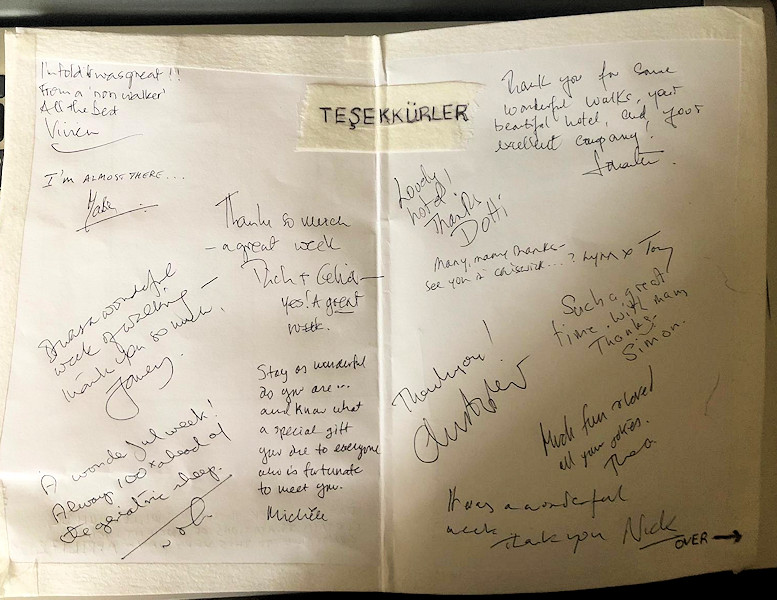 In told it was great!!
From a 'non walker'
All the best
I'M ALMOST THERE...
Thanks so much
- a great week
Dich + Celia -
yes! A great
week.
It was a wonderful
week of walking -
thank you so much.
Stay as wonderful
as you are...
and know what
a special gift
you are to everyone
who is fortunate
to meet you.
Michèle
A wonderful week!
Always 100% ahead of
the geriatric sheep.
TEŞEKKÜRLER
Thank you for some
wonderful walks, your
beautiful hotel, and your
excellent company!
Lovely
hotel!
Thanks
Dotti
Many, many thanks -
see you in Chiswick...? Lynn x Tony
Such a great
time. With many
Thanks.
Simon.
Thank you!
Christopher
Much fun & loved
all your jokes.
Thea
It was a wonderful
week thank you Nick
OVER →